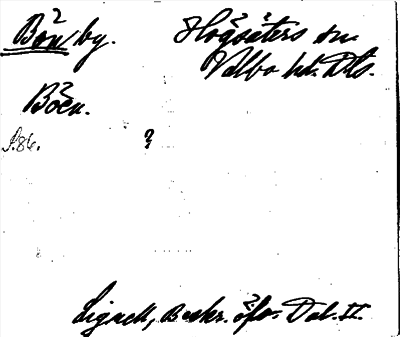 Bön by. Högsäters sn
Valbo hd. Dls.
Böen.
S. 86. ?
Lignell, Beskr. öfv. Dal. II.